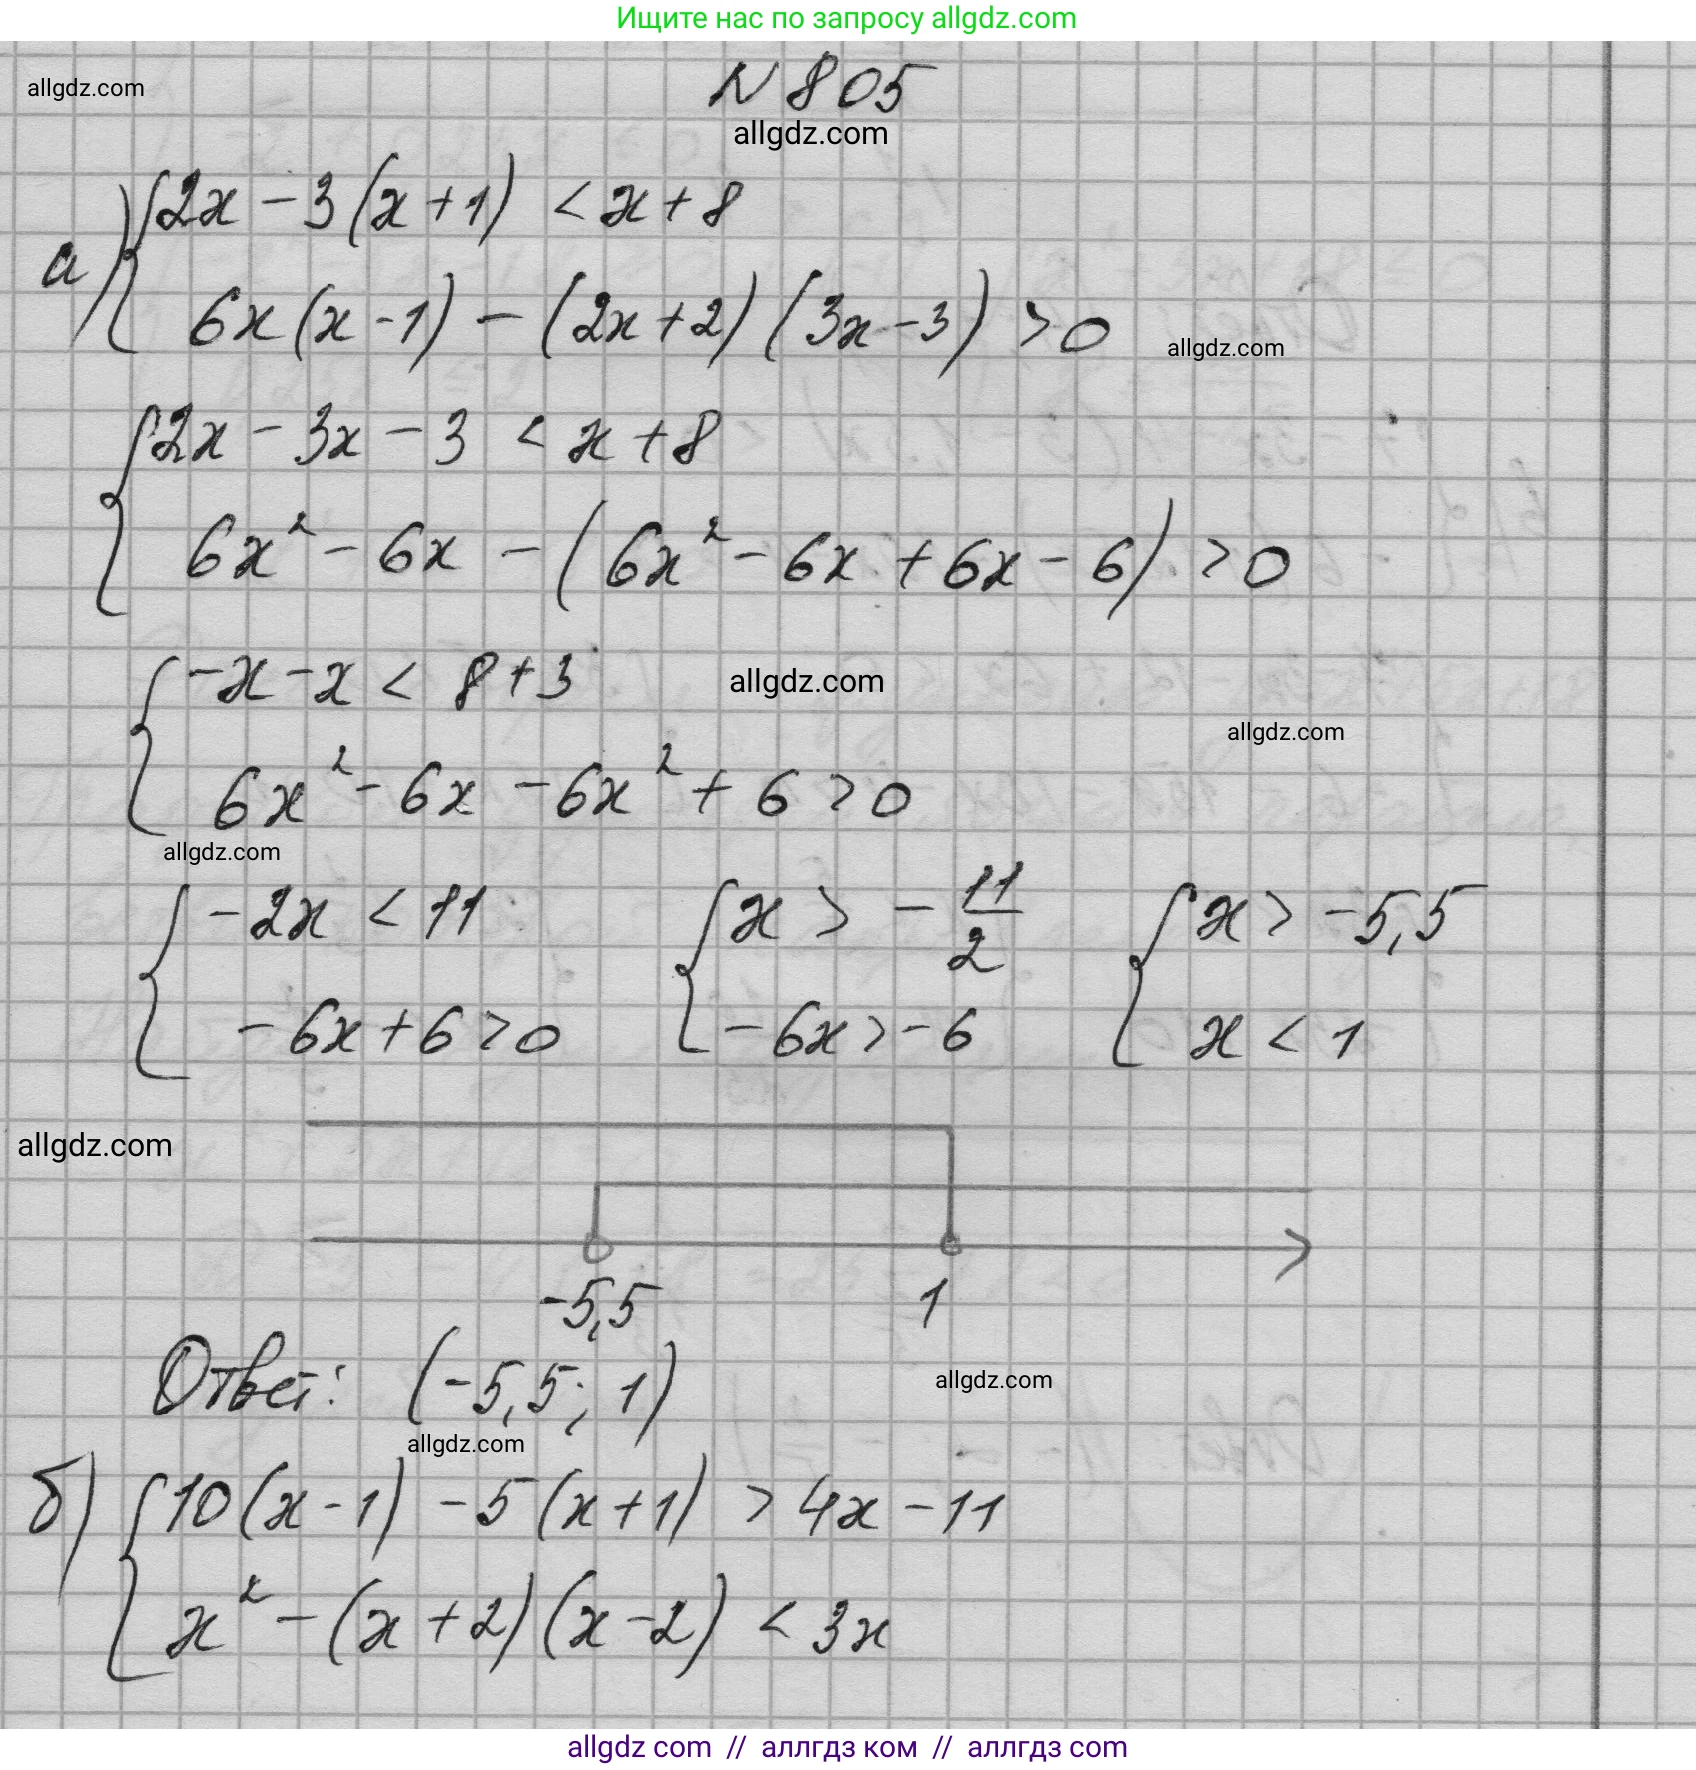 Ищите нас по запросу allgdz.com
allgdz.com
N 805
allgdz.com
а) { 2x - 3(x+1) < x+8
6x(x-1) - (2x+2)(3x-3) > 0
allgdz.com
{ 2x - 3x - 3 < x+8
6x² - 6x - (6x² - 6x + 6x - 6) > 0
{ -x - x < 8+3
allgdz.com
allgdz.com
6x² - 6x - 6x² + 6 > 0
allgdz.com
{ -2x < 11 { x > - 11/2 { x > -5,5
-6x+6 > 0 -6x > -6 x < 1
allgdz.com
-5,5 1
Ответ: (-5,5; 1)
allgdz.com
allgdz.com
б) { 10(x-1) - 5(x+1) > 4x - 11
x² - (x+2)(x-2) < 3x
allgdz com // аллгдз ком // аллгдз com